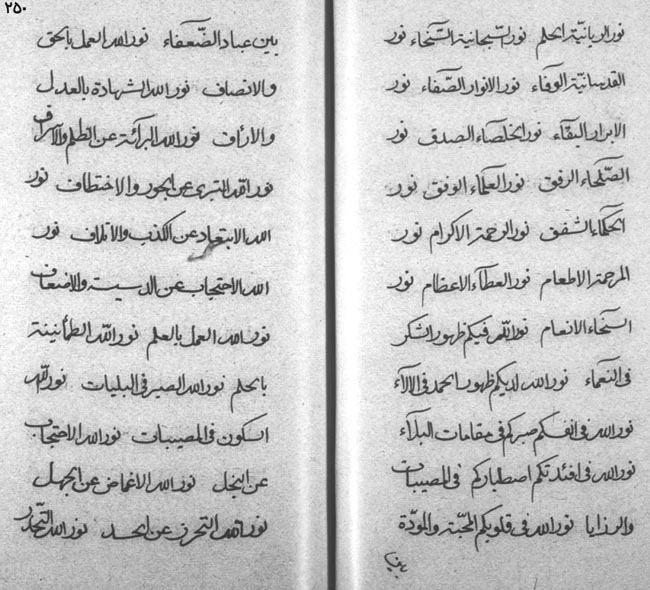 نور الربانیّة الحلم نور السّبحانیة السّخاء نور
القدسانیّة الوفاء نور الانوار الصّفاء نور
الابرار البقّاء نور الخلصاء الصدق نور
الصّلحاء الرفق نور العلماء الوفق نور
الحکماء الشفق نور الرحمة الاکرام نور
المرحمة الاطعام نور العطآء الاعظام نور
السخاء الانعام نور اللّه فیکم ظهور الشکر
فی النعماء نور الله لدیکم ظهور الحمد فی الآلاء
نور الله فی انفسکم صبرکم فی مقامات البلآء
نور الله فی افئدتکم اصطبارکم فی المصیبات
والرزایا نور الله فی قلوبکم المحبّة والمودّة
۲۵۰
بین عباد الضّعفاء نور الله العمل بالحق
والانصاف نور الله الشهادة بالعدل
والارئاف نور الله البرائة عن الظلم والاسراف
نور الله التبری عن الجور والاختطاف نور
الله الابتعاد عن الکذب والاتلاف نور
الله الاحتجاب عن الدسیسة والاضعاف
نور الله العمل بالعلم نور اللّه الطمأنینة
بالحلم نور الله الصبر فی البلیات نور اللّه
السکون فی المصیبات نور الله الاجتناب
عن البخل نور الله الاغماض عن الجهل
نور الله التحرز عن الحسد نور الله التّحذر